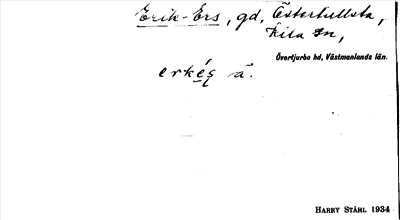 Erik-Ers, gd, Österhullsta,
Kila sn,
Övertjurbo hd, Västmanlands län.
erkés å.
HARRY STÅHL 1934